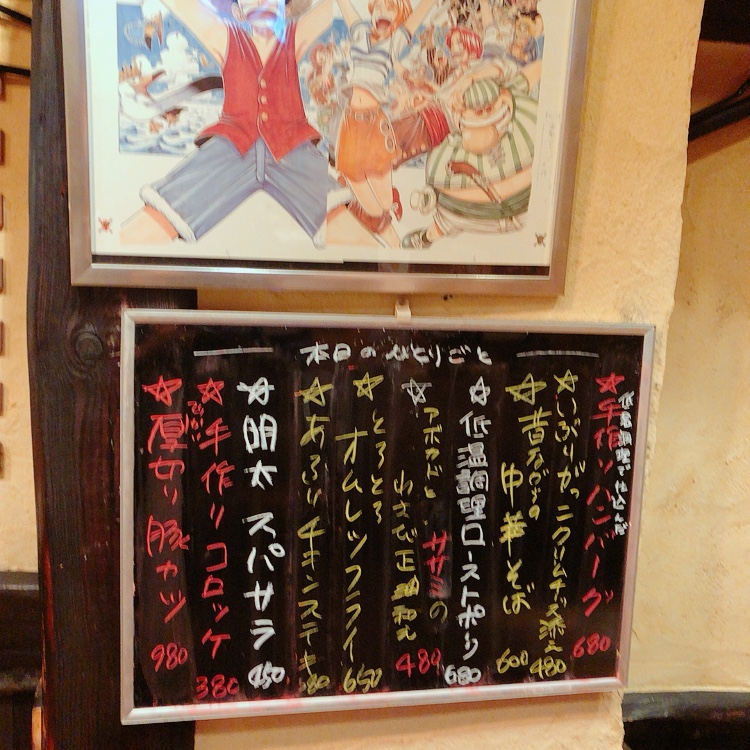 本日のひとりごと
低温調理で仕込んだ
☆手作りハンバーグ 680
☆いぶりがっこクリームチーズ添え 480
☆昔ながらの
中華そば 600
☆低温調理ローストポーク 680
☆アボカドと
ササミの
わさび正油和え 480
☆とろとろ
オムレツフライ 650
☆あぶりチキンステーキ 580
☆明太 スパサラ 450
☆手作り コロッケ 380
☆厚切り 豚カツ 980